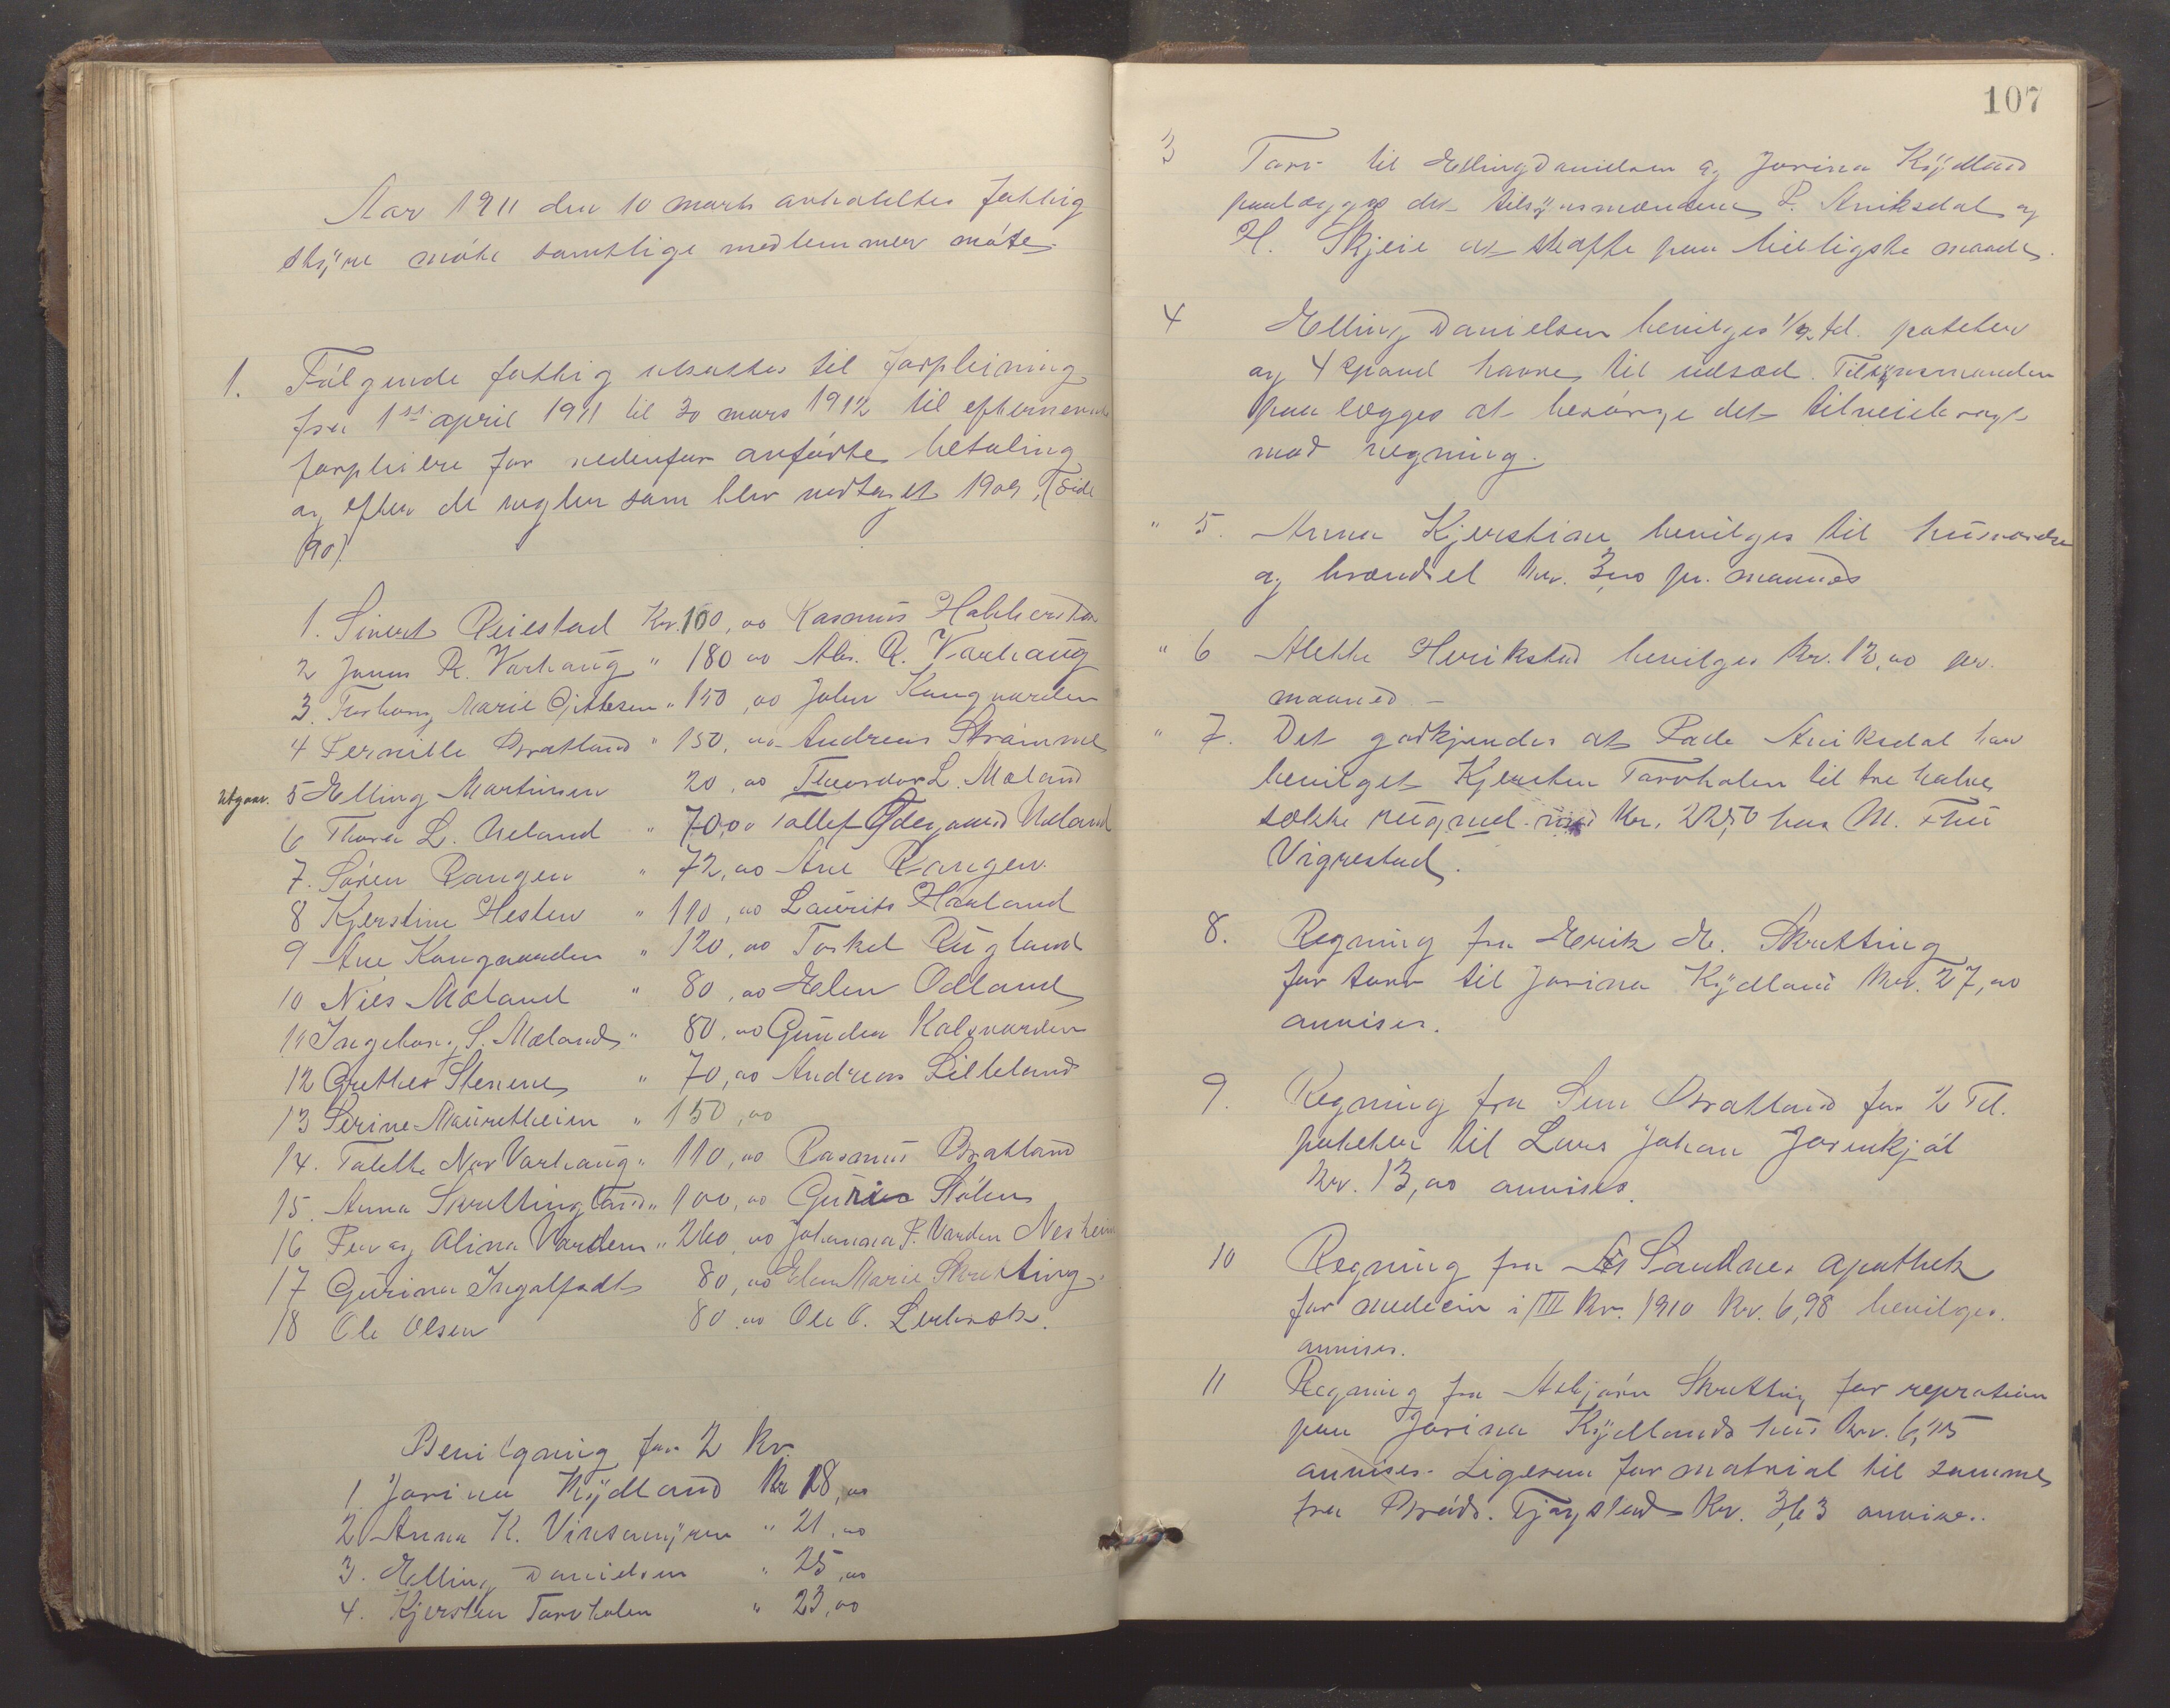 Aar 1911 den 10 marts avholdtes fattig
styre møte samtlige medlemmer møte
1. Følgende fattig utsattes til forpleining
fra 1st april 1911 til 30 mars 1912 til efternevnte
forpleiere for nedenfor anførte betaling
og efter de regler som blev vedtaget 1909, (side
90).
1. Sivert Reiestad Kr. 100,00 Rasmus
2 Jonas R. Varhaug " 180 00 Abr. R. Varhaug
3. Marie Gittesen " 150,00 John Kongvarden
4 Pernille Bratland " 150,00 Andreas Strømme
Utgaar. 5 Elling Martinsen 20,00 Theordor L. Mæland
6 Thora L. Ueland " 70,00 Tollef Ødegaard Ueland
7. Søren Rangen " 72,00 Ane Rangen
8 Kjerstine Hesten " 110,00 Laurits Haaland
9 Ane Kongvarden " 120,00 Torkel Rugland
10 Niels Mæland " 80,00 Elen Odland
11 Ingeborg S. Mæland " 80,00 Gunder Kalsvarden
12 Grethe Stenene " 70,00 Andreas Litleland
13 Serine Mauretheien " 150,00
14. Talette Nor Varhaug " 110,00 Rasmus Bratland
15. Anna Skrettingland " 100,00 Gurine Stølen
16 Per og Olina Varden " 260,00 Johanna P. Varden Nesheim
17 Gurina Ingolfsdt 80,00 Elen Marie Skretting
18 Ole Olsen 80,00 Ole O. Lerbrek.
Bevilgning for 2 Kv.
1. Jorina Kydland Kr 18,00
2 Anna K. Vinsemyren " 21,00
3. Elling Danielsen " 25,00
4. Kjersten Torvholen " 23,00
107
3 Torv til Elling Danielsen og Jorina Kydland
paalægges det tilsynsmændene P. Aniksdal og
H. Skjeie at skaffe paa billigste maade.
4 Elling Danielsen bevilges 1/2 td. poteter
og 4 spand havre til udsæd. Tilsynsmanden
paa lægges at besørge det tilveiebragt
mod regning.
" 5. Anna Kjerstine bevilges til husvære
og brændsel Kr. 3,00 pr. maaned
" 6 Alette Herikstad bevilges Kr. 12,00 pr.
maaned. –
" 7. Det godkjendes at Pade Aniksdal har
bevilget Kjersten Torvholen til tre halve
sække rugmel Kr. 22,50 hos M. Thu
Vigrestad.
8. Regning fra Eerik E. Skretting
for torv til Jorina Kydland Kr. 27,00
anvises.
9. Regning fra Sem Bratland for 2 Td.
poteter til Lars Johan Josenkjøl
Kr. 13,00 anvises.
10 Regning fra Sandnes apothek
for medecin i III Kv. 1910 Kr. 6,98 bevilges.
anvises.
11 Regning fra Asbjørn Skretting for repration
paa Jorina Kydlands hus Kr. 6,15
anvises. Ligesom for matrial til samme
fra Brødr. Tjøgstad Kr. 3,63 anvise..